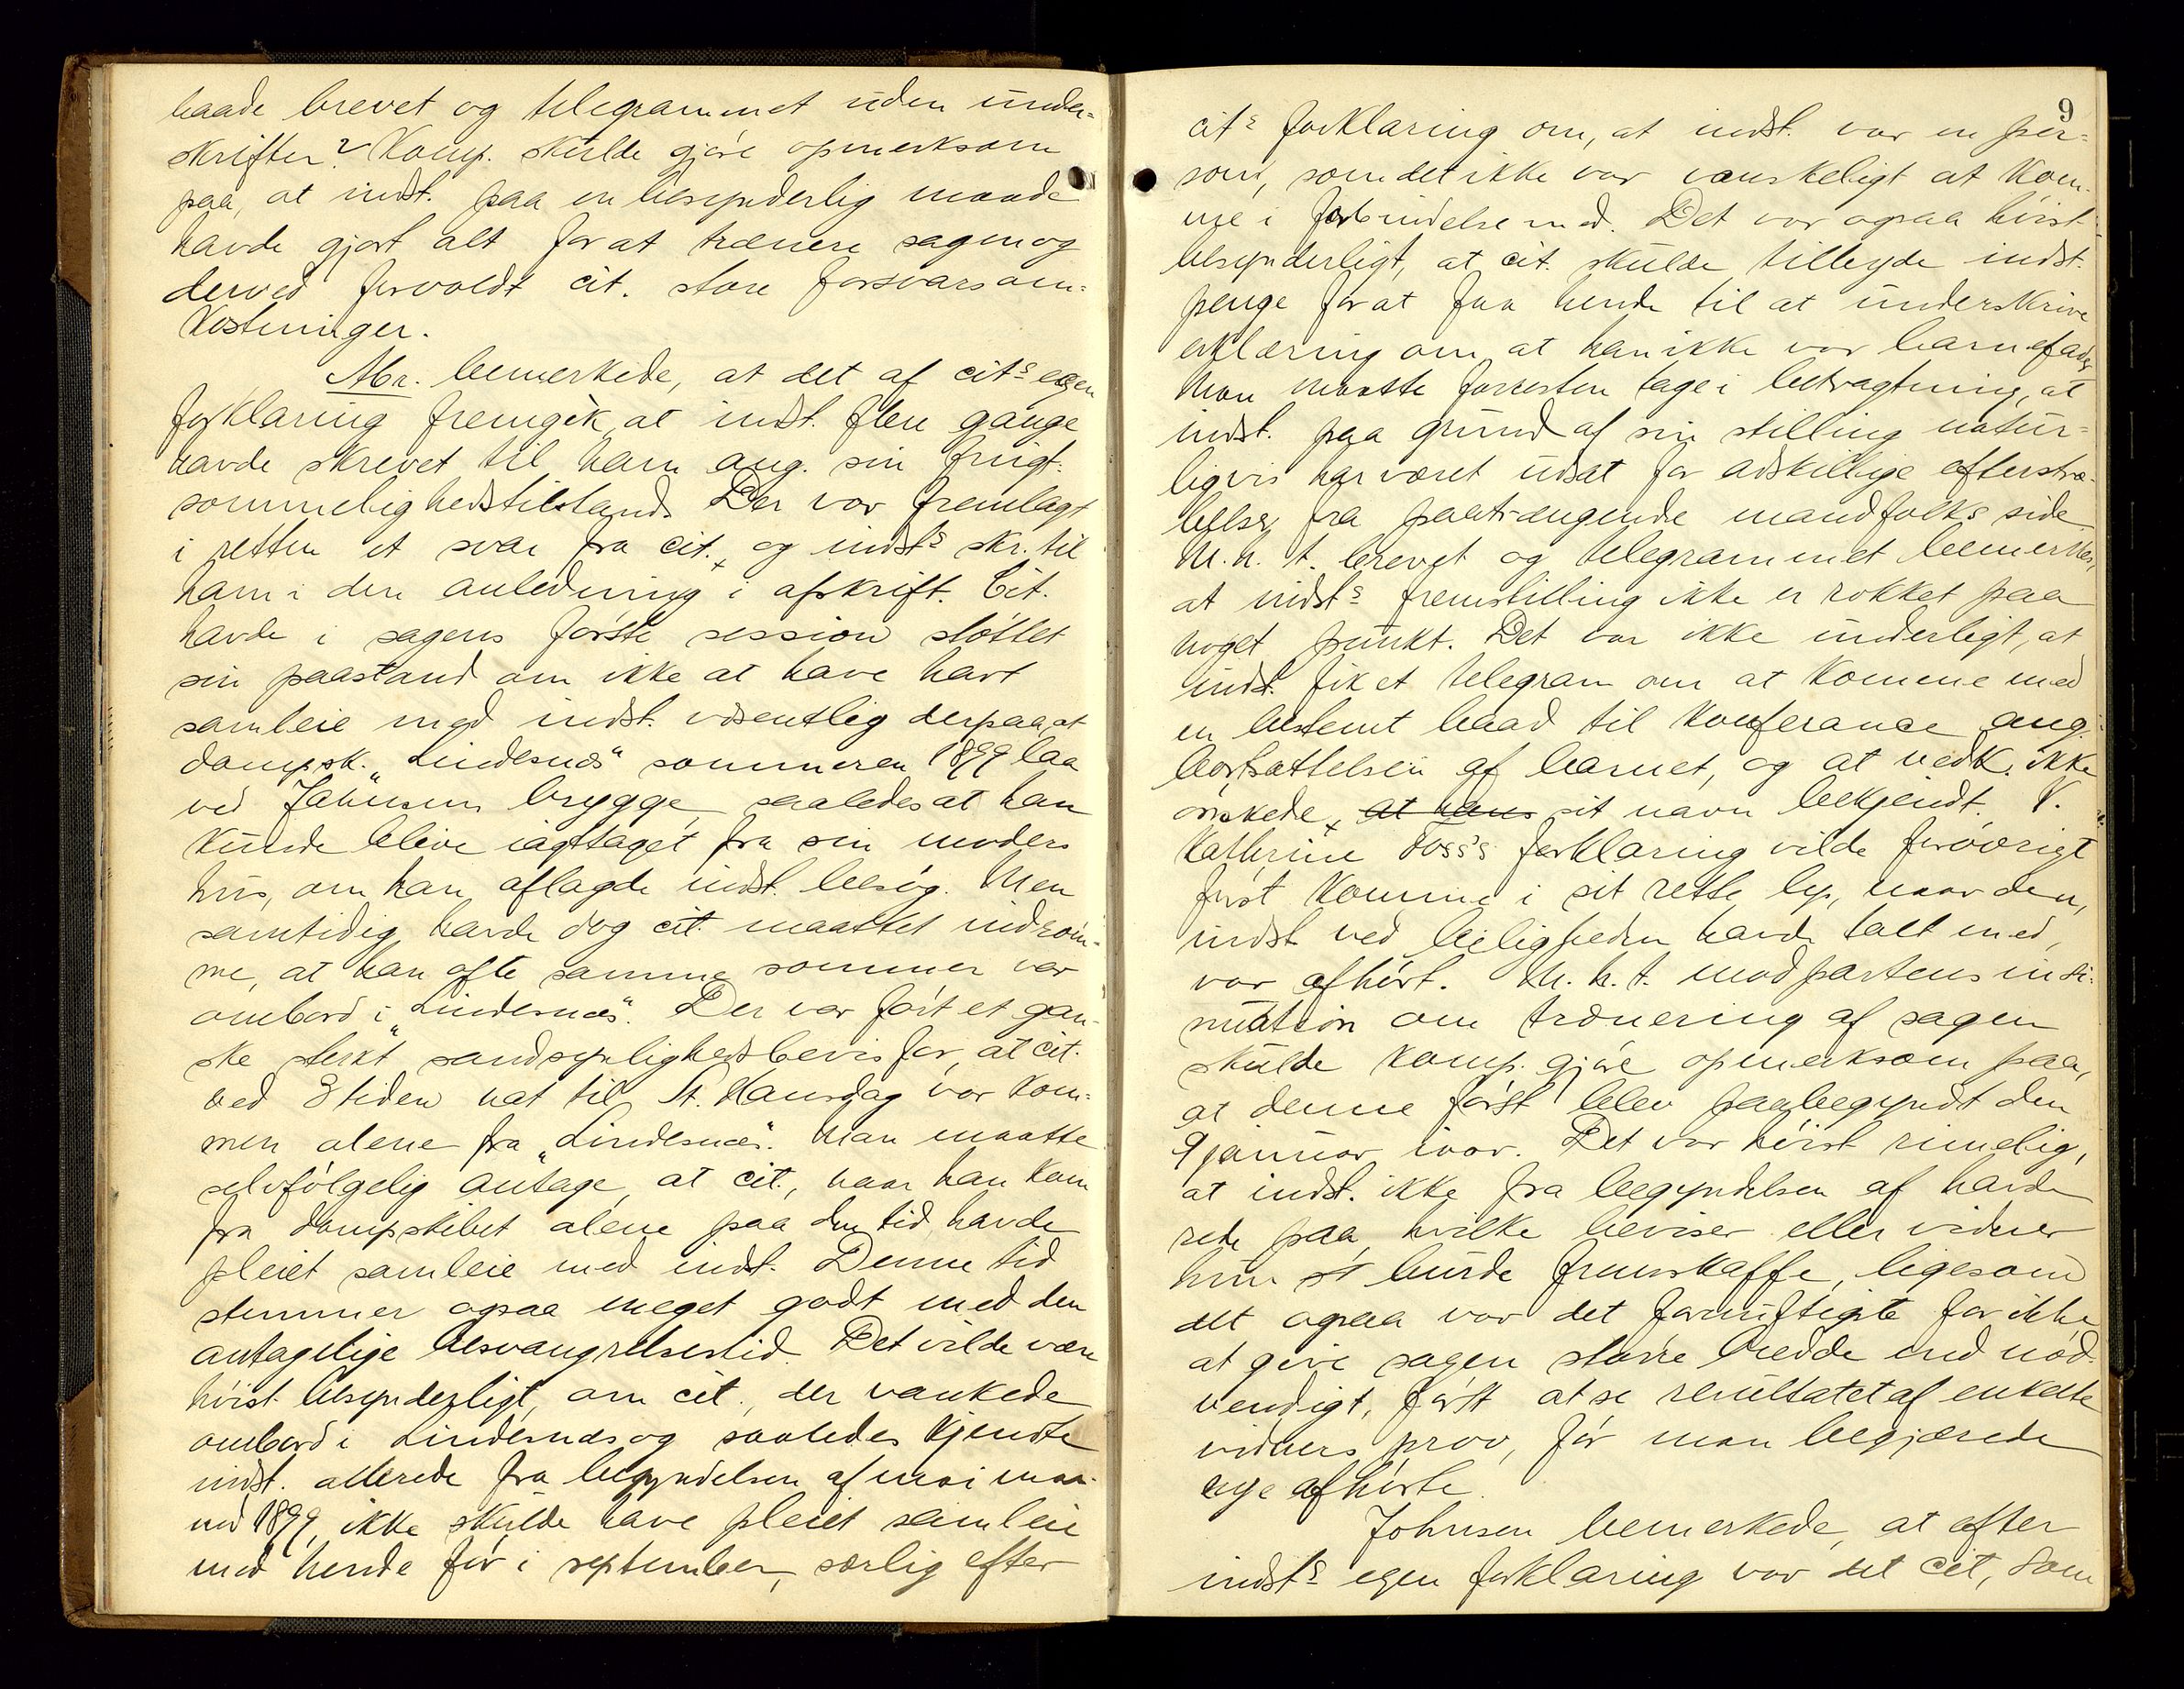 baade brevet og telegrammet uden under-
skrifter? Komp. skulde gjøre opmerksom
paa, at indst. paa en besynderlig maade
havde gjort alt for at trænere sagen og
derved forvoldt cit. store forsvarsom-
kostninger.
Mr. bemerkede, at det af cits egen
forklaring fremgik, at indst. flere gange
havde skrevet til ham ang. sin frugt-
sommelighedstilstand. Der var fremlagt
i retten et svar fra cit. og indsts skr. til
ham i den anledning i afskrift. Cit.
havde i sagens første session støttet
sin paastand om ikke at have havt
samleie med indst. væsentlig derpaa, at
dampsk. „Lindesnæs" sommeren 1899 laa
ved Jahnsens brygge, saaledes at han
kunde blive iagttaget fra sin moders
hus, om han aflagde indst. besøg. Men
samtidig havde dog cit. maattet indrøm-
me, at han ofte samme sommer var
ombord i „Lindesnæs". Der var ført et gan-
ske sterkt sandsynlighedsbevis for, at cit.
ved 3 tiden nat til St. Hansdag var kom-
men alene fra „Lindesnæs". Man maatte
selvfølgelig antage, at cit., naar han kom
fra dampskibet alene paa den tid, havde
pleiet samleie med indst. Denne tid
stemmer ogsaa meget godt med den
antagelige besvangrelsestid. Det vilde være
høist besynderligt, om cit., der vankede
ombord i Lindesnæs og saaledes kjendte
indst. allerede fra begyndelsen af mai maa-
ned 1899, ikke skulde have pleiet samleie
med hende før i september, særlig efter
9
cits forklaring om, at indst. var en per-
son, som det ikke var vanskeligt at kom-
me i forbindelse med. Det var ogsaa høist
besynderligt, at cit. skulde tilbyde indst.
penge for at faa hende til at underskrive
erklæring om, at han ikke var barnefader.
Man maatte forresten tage i betragtning, at
indst. paa grund af sin stilling natur-
ligvis har været udsat for adskillige efterstræ-
belser fra paatrængende mandfolks side.
M. h. t. brevet og telegrammet bemerkes,
at indsts fremstilling ikke er rokket paa
noget punkt. Det var ikke underligt, at
indst. fik et telegram om at komme med
en bestemt baad til konferance ang.
bortsættelsen af barnet, og at vedk. ikke
ønskede, at hans sit navn bekjendt. V.
Kathrine Foss's forklaring vilde forøvrigt
først komme i sit rette lys, naar den,
indst. ved leiligheden havde talt med,
var afhørt. M. h. t. modpartens insi-
nuation om trænering af sagen
skulde komp. gjøre opmerksom paa,
at denne først blev paabegyndt den
9 januar iaar. Det var høist rimelig,
at indst. ikke fra begyndelsen af havde
rede paa, hvilke beviser eller vidner
hun burde fremskaffe, ligesom
det ogsaa var det fornuftigste for ikke
at give sagen større bredde end nød-
vendigt, først at se resultatet af enkelte
vidners prov, før man begjærede
nye afhørte.
Johnsen bemerkede, at efter
indsts egen forklaring var det cit, som